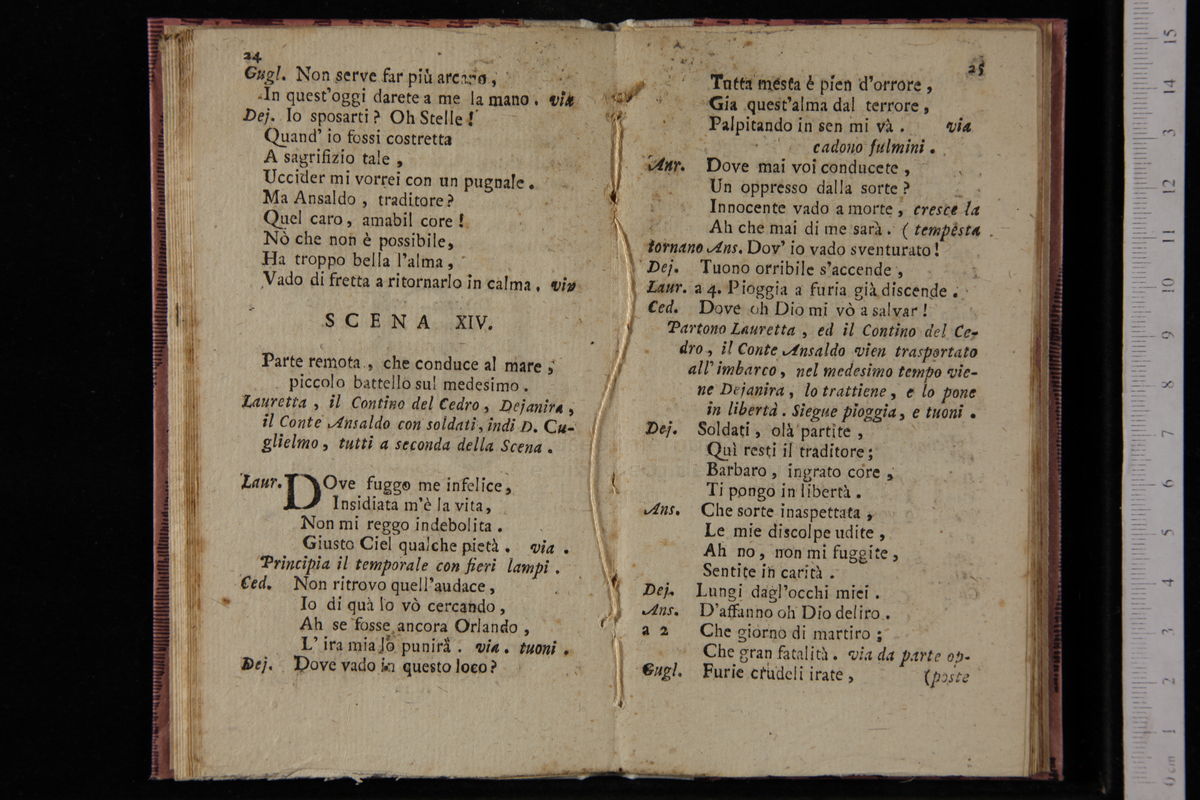 24
Gugl. Non serve far più arcano,
In quest'oggi darete a me la mano. via
Dej. Io sposarti? Oh Stelle!
Quand' io fossi costretta
A sagrifizio tale,
Uccider mi vorrei con un pugnale.
Ma Ansaldo, traditore?
Quel caro, amabil core!
Nò che non è possibile,
Ha troppo bella l'alma,
Vado di fretta a ritornarlo in calma. via
SCENA XIV.
Parte remota, che conduce al mare;
piccolo battello sul medesimo.
Lauretta, il Contino del Cedro, Dejanira,
il Conte Ansaldo con soldati, indi D. Cu-
glielmo, tutti a seconda della Scena.
Laur. DOve fuggo me infelice,
Insidiata m'è la vita,
Non mi reggo indebolita.
Giusto Ciel qualche pietà. via.
Principia il temporale con fieri lampi.
Ced. Non ritrovo quell'audace,
Io di quà lo vò cercando,
Ah se fosse ancora Orlando,
L' ira mia lo punirà. via. tuoni.
Dej. Dove vado in questo loco?
25
Tutta mesta è pien d'orrore,
Gia quest'alma dal terrore,
Palpitando in sen mi và. via
cadono fulmini.
Anr. Dove mai voi conducete,
Un oppresso dalla sorte?
Innocente vado a morte, cresce la
Ah che mai di me sarà. (tempesta
tornano Ans. Dov' io vado sventurato!
Dej. Tuono orribile s'accende,
Laur. a 4. Pioggia a furia già discende.
Ced. Dove oh Dio mi vò a salvar!
Partono Lauretta, ed il Contino del Ce-
dro, il Conte Ansaldo vien trasportato
all' imbarco, nel medesimo tempo vie-
ne Dejanira, lo trattiene, e lo pone
in libertà. Siegue pioggia, e tuoni.
Dej. Soldati, olà partite,
Quì resti il traditore;
Barbaro, ingrato core,
Ti pongo in libertà.
Ans. Che sorte inaspettata,
Le mie discolpe udite,
Ah no, non mi fuggite,
Sentite in carità.
Dej. Lungi dagl'occhi miei.
Ans. D'affanno oh Dio deliro.
a 2 Che giorno di martiro;
Che gran fatalità. via da parte op-
Gugl. Furie crudeli irate, (poste
15
14
13
12
11
10
9
8
7
6
5
4
3
2
1
0 cm